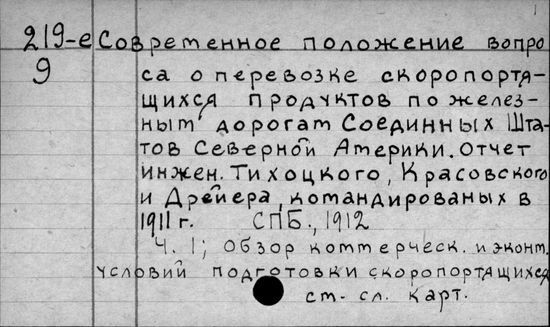 219-е Современное положение вопро
9 са о перевозке скоропортя-
щихся продуктов по желез-
ным дорогам Соединных Шта-
тов Северной Америки. Отчет
инжен. Тихоцкого, Красовского
и Дрейера, командированых в
1911 г. СПБ., 1912
Ч. 1; Обзор коммерческ. и эконт.
условий подготовки скоропортящихся
ст. сл. карт.